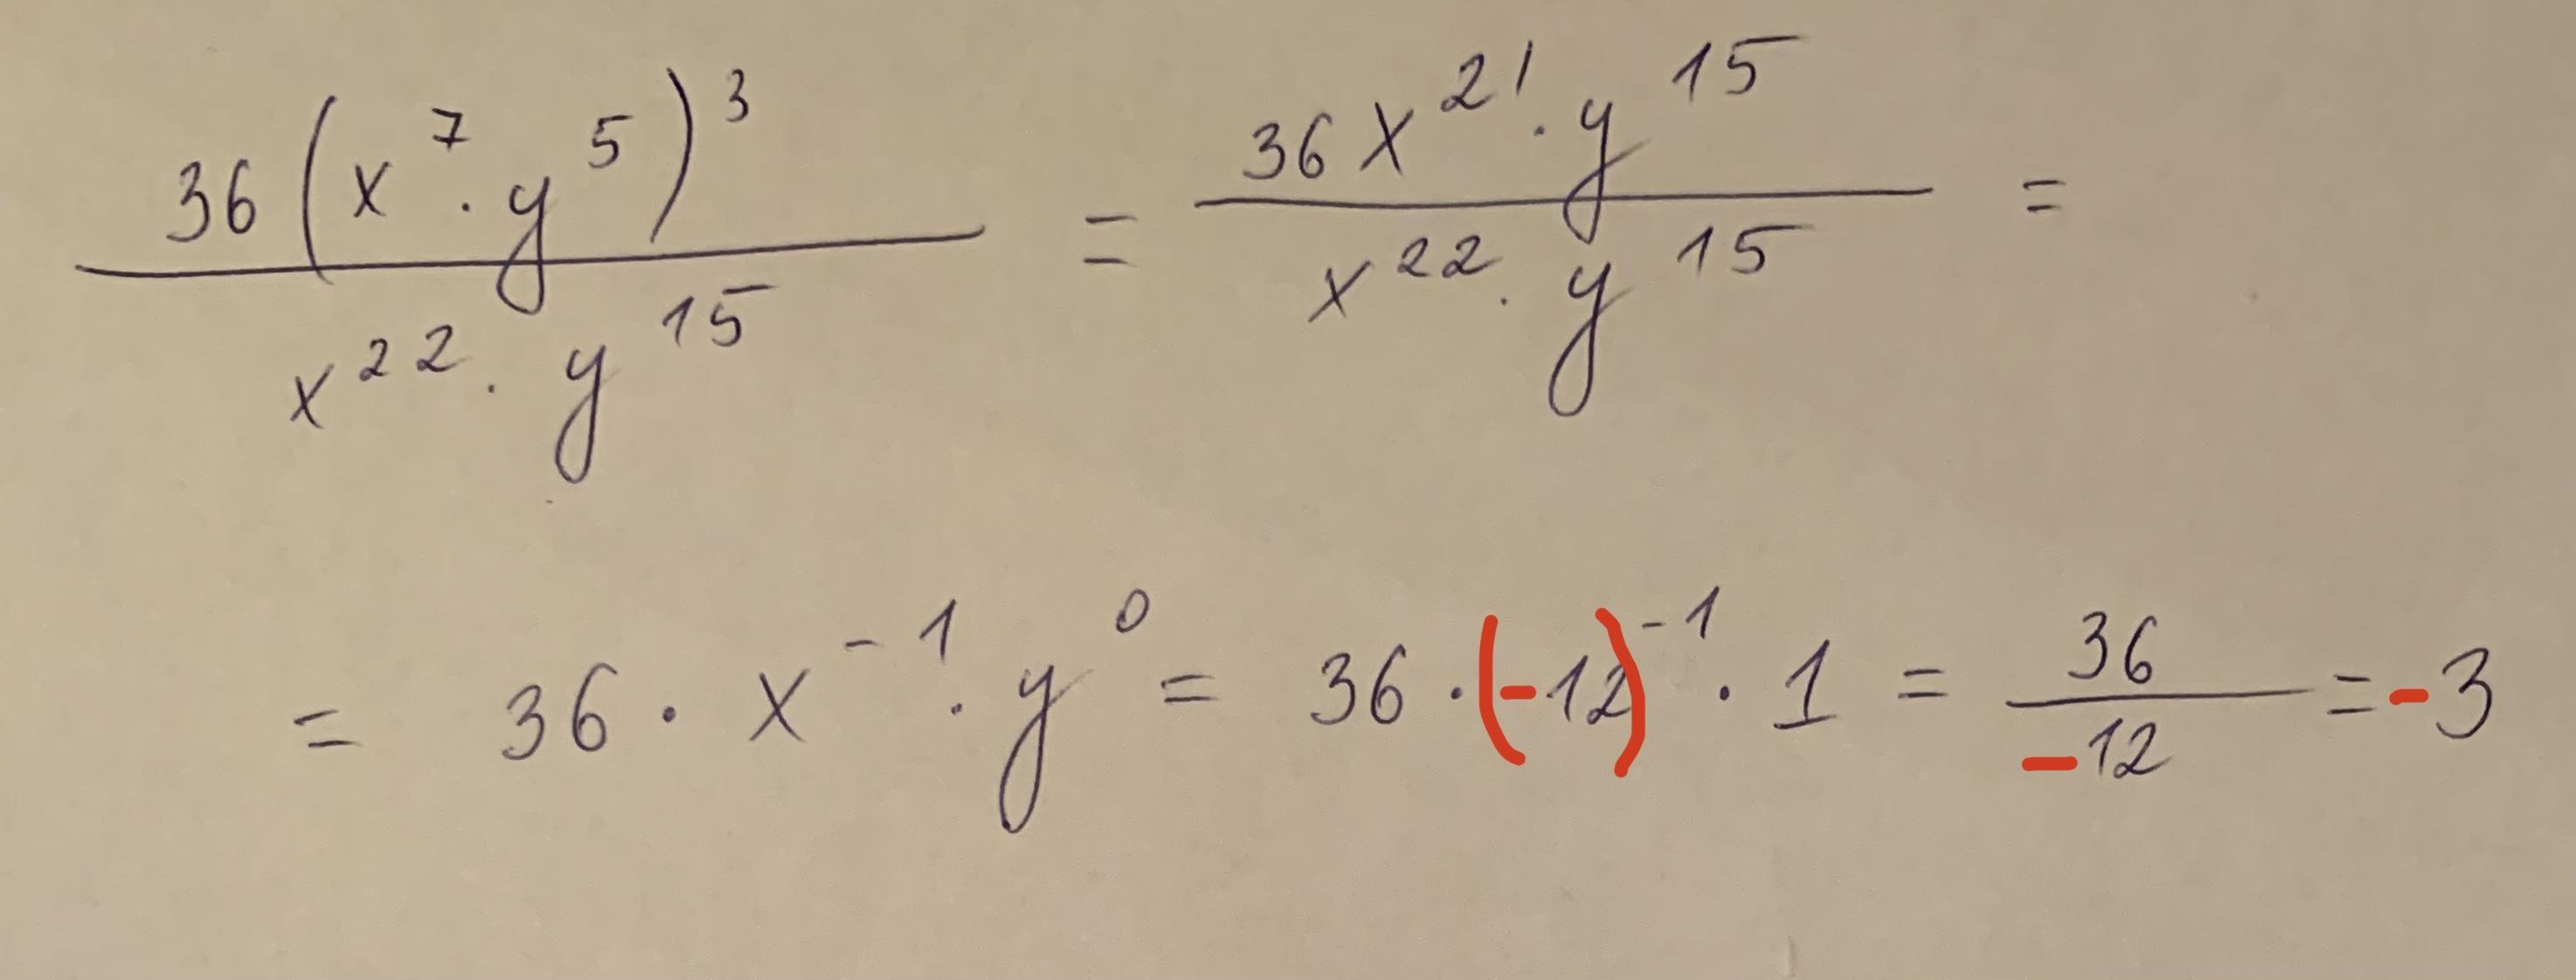 36(x⁷·y⁵)³ / x²²·y¹⁵ = 36x²¹·y¹⁵ / x²²·y¹⁵ =
= 36·x⁻¹·y⁰ = 36·(-12)⁻¹·1 = 36 / -12 = -3